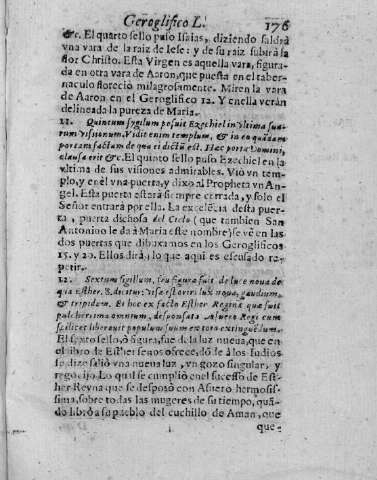 Geroglifico L. 176
&c. El quarto sello puso Isaias, diziendo saldrà
vna vara de la raiz de Iese: y de su raiz subirà la
flor Christo. Esta Virgen es aquella vara, figura-
da en otra vara de Aaron, que puesta en el taber-
naculo florecio milagrosamente. Miren la vara
de Aaron en el Geroglifico 12. Y en ella veràn
delineada la pureza de Maria.
11. Quintum sygillum posuit Ezechiel in vltima sua-
rum visionum. Vidit enim templum, & in eo quādam
portam factum de qua ei dictū est. Hæc porta Domini,
clausa erit &c. El quinto sello puso Ezechiel en la
vltima de sus visiones admirables. Viò vn tem-
plo, y en èl vna puerta, y dixo al Propheta vn An-
gel. Esta puerta estarà siempre cerrada, y solo el
Señor entrarà por ella. La excelēcia desta puer-
ta, puerta dichosa del Cielo (que tambien San
Antonino le da à Maria este nombre) se vè en las
dos puertas que dibuxamos en los Geroglificos
15. y 20. Ellos dirà, lo que aqui es escusado re-
petir.
12. Sextum sigillum, seu figura fuit de luce noua de
qua Esther. 8. dicitur: visa est oriri lux noua, gaudium,
& tripudium. Et hoc ex facto Esther Reginæ quæ fuit
pulcherrima omnium, desponsata Asuero Regi cum
scilicet liberauit populum suum ex toro extinguēdum.
El sexto sello, ò figura, fue de la luz nueua, que en
el libro de Esther se nos ofrece, dōde à los Iudios
se dize saliò vna nueua luz, y vn gozo singular, y
regocijo. Lo qual se cumpliò en el sucesso de Est-
her Reyna que se desposò con Asuero hermosis-
sima, sobre todas las mugeres de su tiempo, quā-
do librò a su pueblo del cuchillo de Aman, que
que-